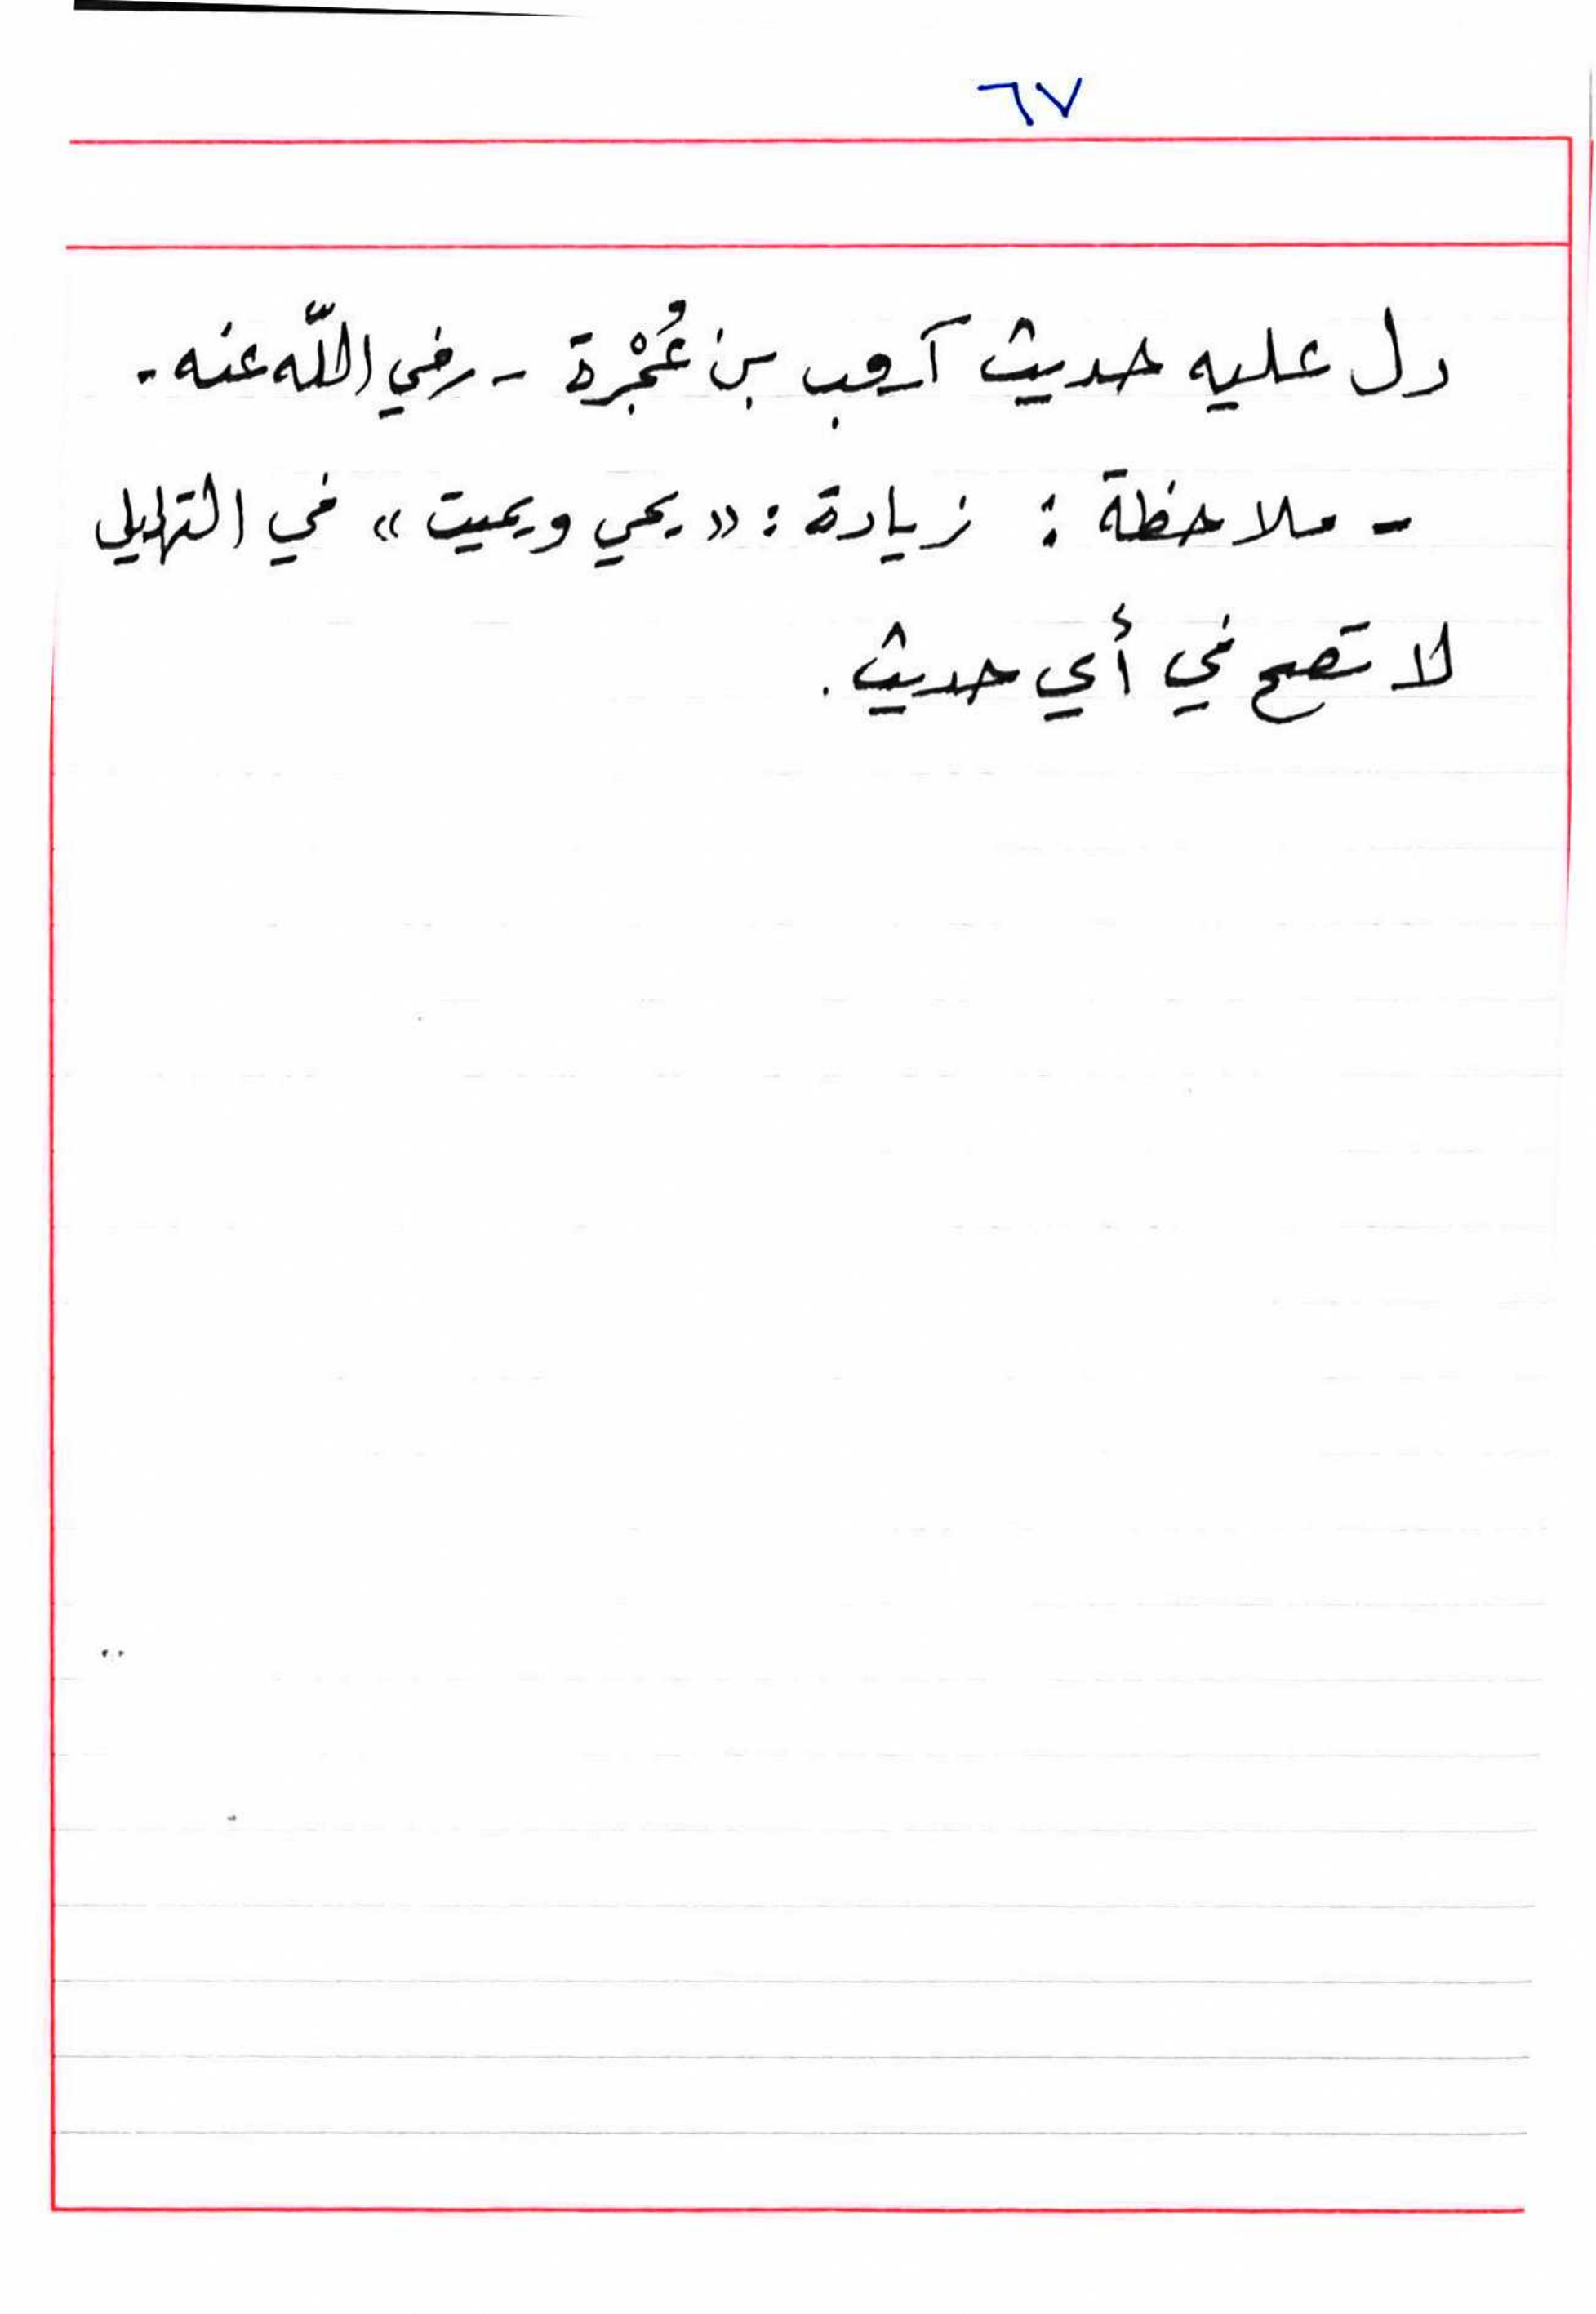 ٦٧
دل عليه حديث كعب بن عُجْرة - رضي اللّه عنه -
- ملاحظة : زيادة : «يحيي ويميت» في التهليل
لا تصح في أي حديث .